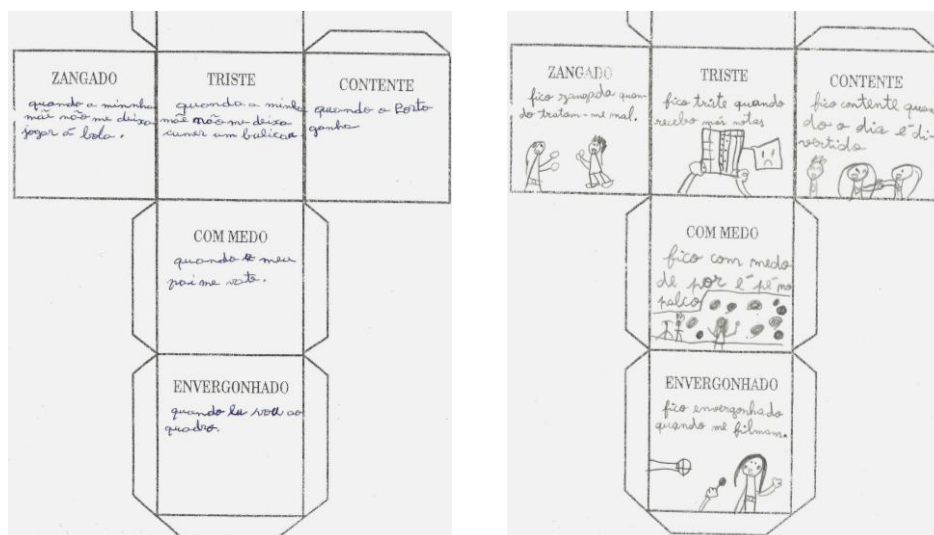 ZANGADO
quando a minnha
mãe não me deixa
jogar á bola.
TRISTE
quando a minha
mãe não me deixa
cumer um
CONTENTE
quando o Porto
ganha
COM MEDO
quando o meu
pai me vate.
ENVERGONHADO
quando eu vou ao
quadro.
ZANGADO
fico zangada quan-
do tratam-me mal.
TRISTE
fico triste quando
recebo más notas
CONTENTE
fico contente quan
do o dia é di-
vertido
COM MEDO
fico com medo
de por é pé no
palco
ENVERGONHADO
fico envergonhado
quando me filmam.